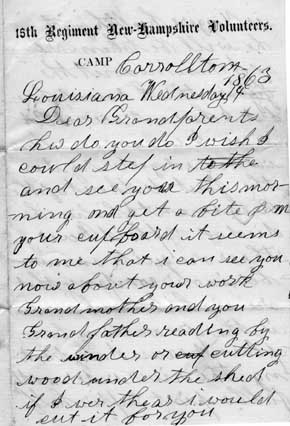 15th Regiment New-Hampshire Volunteers.
CAMP Carrollton
1863
Louisiana Wednesday 4
Dear Grandparents
how do you do I wish I
cowld step in to the
and see your this mor-
ning and get a bite from
your cupboard it seems
to me that i can see you
now about your work
Grandmother and you
Grandfather reading by
the winder or cutting
wood under the shed
if I wer thear i would
cut it for you